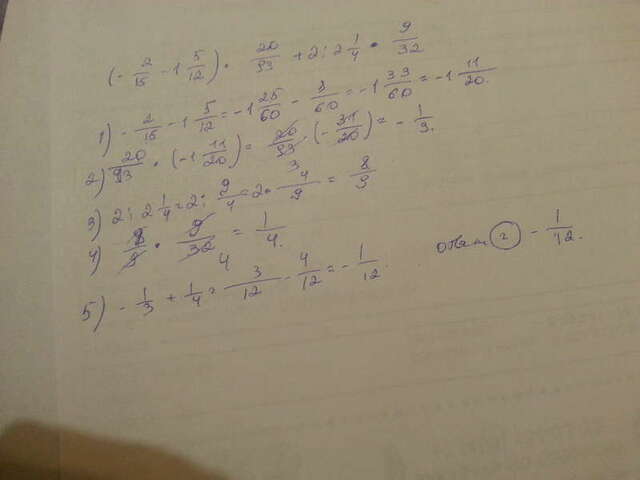 (- 2/15 - 1 5/12) · 20/93 + 2 : 2 1/4 · 9/32
1) - 2/15 - 1 5/12 = -1 25/60 - 8/60 = -1 33/60 = -1 11/20.
2) 20/93 · (-1 11/20) = 20/93 · (- 31/20) = - 1/3.
3) 2 : 2 1/4 = 2 : 9/4 = 2 · 4/9 = 8/9
4) 8/9 · 9/32 = 1/4.
5) - 1/3 + 1/4 = 3/12 - 4/12 = - 1/12.
ответ : - 1/12.